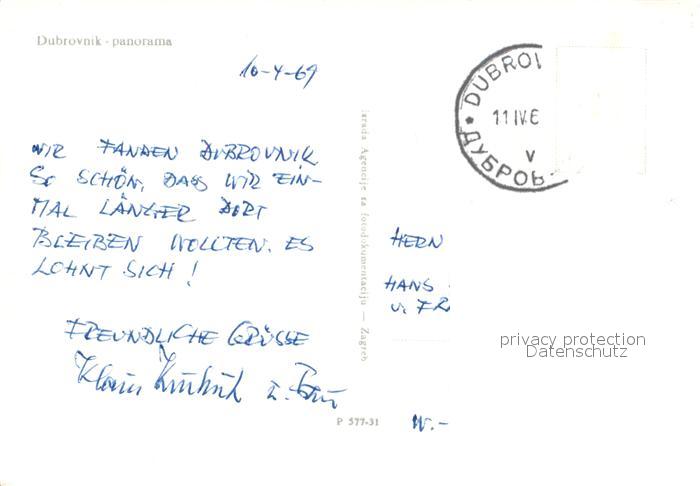 Dubrovnik - panorama
10-4-69
WIR FANDEN DUBROVNIK
SO SCHÖN, DASS WIR EIN-
MAL LÄNGER DORT
BLEIBEN WOLLTEN. ES
LOHNT SICH!
FREUNDLICHE GRÜSSE
Klaus
u. Frau
P 577-31
Izrada Agencije za fotodokumentaciju — Zagreb
DUBROV
11 IV.6
v
ДУБРОВ
HERN
HANS
u. FR
W.-
privacy protection
Datenschutz